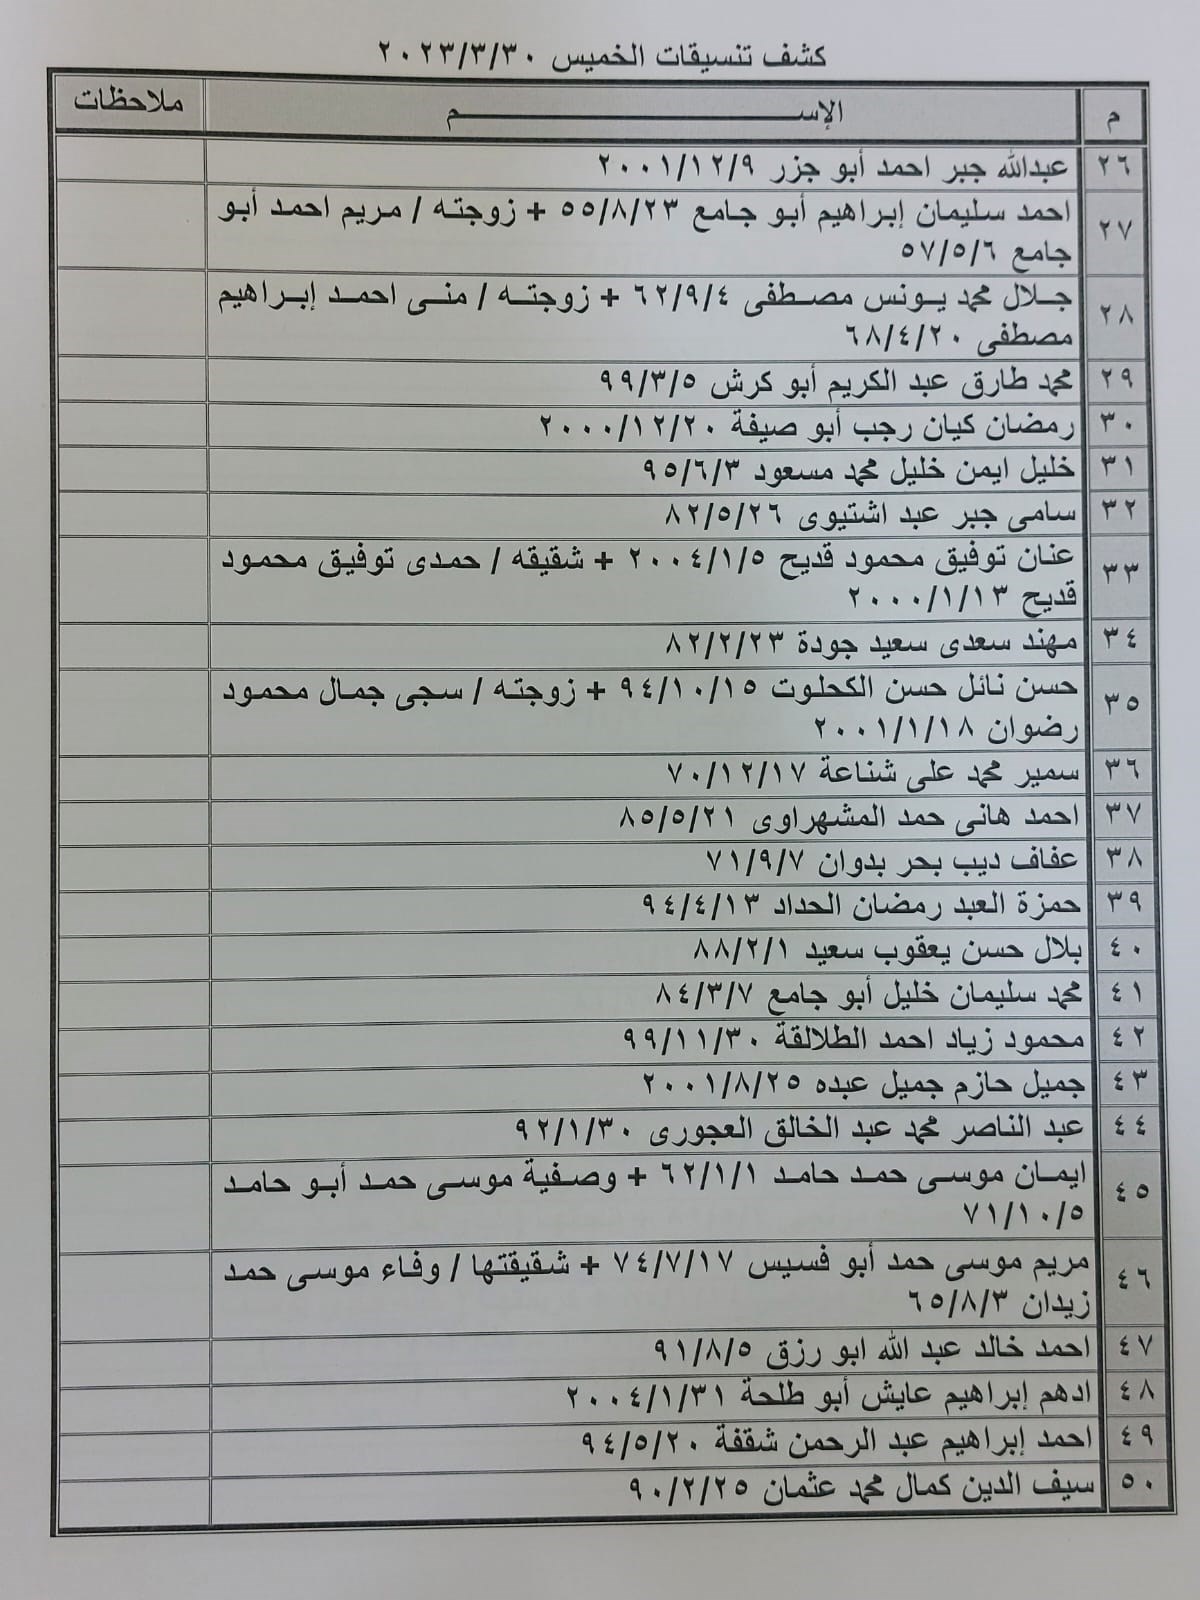 كشف تنسيقات الخميس ٢٠٢٣/٣/٣٠
م الإســـم ملاحظات
٢٦ عبدالله جبر احمد أبو جزر ٢٠٠١/١٢/٩
٢٧ احمد سليمان إبراهيم أبو جامع ٥٥/٨/٢٣ + زوجته / مريم احمد أبو
جامع ٥٧/٥/٦
٢٨ جلال محمد يونس مصطفى ٦٢/٩/٤ + زوجته / منى احمد إبراهيم
مصطفى ٦٨/٤/٢٠
٢٩ محمد طارق عبد الكريم أبو كرش ٩٩/٣/٥
٣٠ رمضان كيان رجب أبو صيفة ٢٠٠٠/١٢/٢٠
٣١ خليل ايمن خليل محمد مسعود ٩٥/٦/٣
٣٢ سامى جبر عبد اشتيوى ٨٢/٥/٢٦
٣٣ عنان توفيق محمود قديح ٢٠٠٤/١/٥ + شقيقه / حمدى توفيق محمود
قديح ٢٠٠٠/١/١٣
٣٤ مهند سعدى سعيد جودة ٨٢/٢/٢٣
٣٥ حسن نائل حسن الكحلوت ٩٤/١٠/١٥ + زوجته / سجى جمال محمود
رضوان ٢٠٠١/١/١٨
٣٦ سمير محمد على شناعة ٧٠/١٢/١٧
٣٧ احمد هانى حمد المشهراوى ٨٥/٥/٢١
٣٨ عفاف ديب بحر بدوان ٧١/٩/٧
٣٩ حمزة العبد رمضان الحداد ٩٤/٤/١٣
٤٠ بلال حسن يعقوب سعيد ٨٨/٢/١
٤١ محمد سليمان خليل أبو جامع ٨٤/٣/٧
٤٢ محمود زياد احمد الطلالقة ٩٩/١١/٣٠
٤٣ جميل حازم جميل عبده ٢٠٠١/٨/٢٥
٤٤ عبد الناصر محمد عبد الخالق العجورى ٩٢/١/٣٠
٤٥ ايمان موسى حمد حامد ٦٢/١/١ + وصفية موسى حمد أبو حامد
٧١/١٠/٥
٤٦ مريم موسى حمد أبو فسيس ٧٤/٧/١٧ + شقيقتها / وفاء موسى حمد
زيدان ٦٥/٨/٣
٤٧ احمد خالد عبد الله ابو رزق ٩١/٨/٥
٤٨ ادهم إبراهيم عايش أبو طلحة ٢٠٠٤/١/٣١
٤٩ احمد إبراهيم عبد الرحمن شقفة ٩٤/٥/٢٠
٥٠ سيف الدين كمال محمد عثمان ٩٠/٢/٢٥